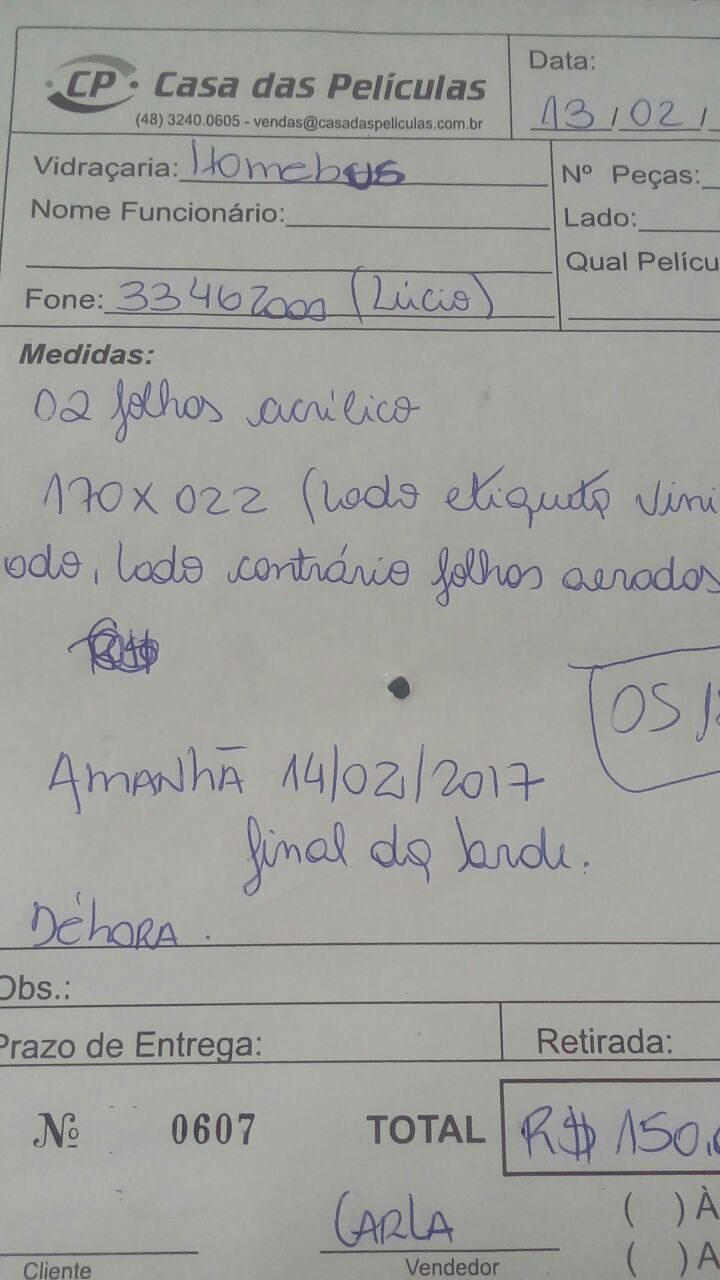 CP Casa das Películas
(48) 3240.0605 - vendas@casadaspeliculas.com.br
Data:
13 / 02 /
Vidraçaria: Homebus
Nº Peças:
Nome Funcionário:
Lado:
Qual Pelícu
Fone: 33462000 (Lúcio)
Medidas:
02 folhas acrílico
170 X 022 (Lado etiqueta vini
ado, lado contrário folhas aeradas
OS
AMANHÃ 14/02/2017
final da tarde.
DÉBORA.
Obs.:
Prazo de Entrega:
Retirada:
Nº 0607
TOTAL
R$ 150,0
CARLA
( ) À
Cliente
Vendedor
( ) A